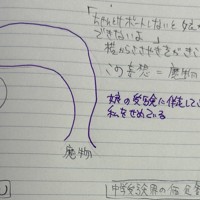 「ちゃんとサポートしないと娘が
できないよ
横からささやきがきこ
この妄想 = 魔物
娘の受験に依存して
私をせめている
魔物
中学受験界の